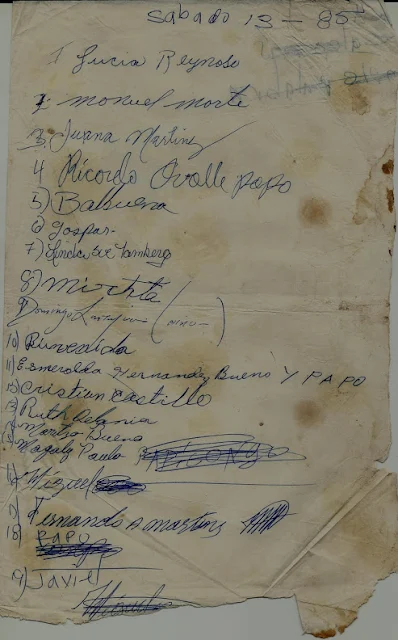 Sabado 13 - 85
1 Lucia Reynoso
2. monuel monte
3. Juana Martinez
4 Ricordo Ovalle papo
5) Balbuena
6) Gaspar-
7) Linda
8) michte
9) Domingo (NIKO-)
10) Bienvenida
11) Esmeralda Hernandez Bueno Y PAPO
12) Cristian Castillo
13) Ruth
Maritza Bueno
Magaly Paulo
16) Miguel
17) Fernando A martinez
18) PAPU
19) Javiel